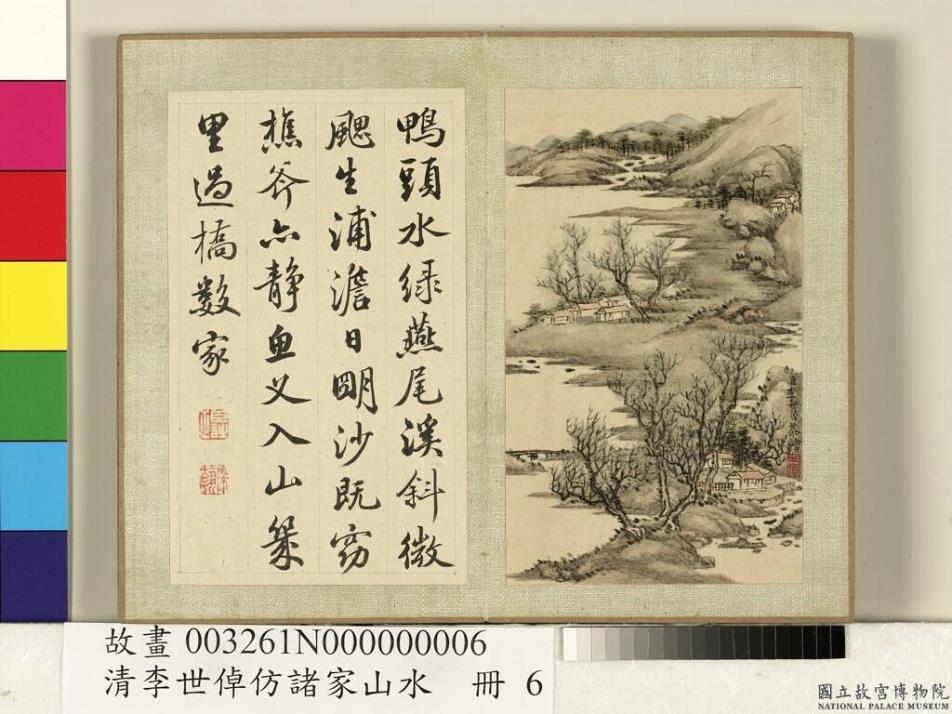 鴨頭水綠燕尾溪斜微
颸生浦澹日明沙既窈
樵斧亦靜魚叉入山幾
里過橋數家
故畫 003261N000000006
清李世倬仿諸家山水 冊 6
國立故宮博物院
NATIONAL PALACE MUSEUM